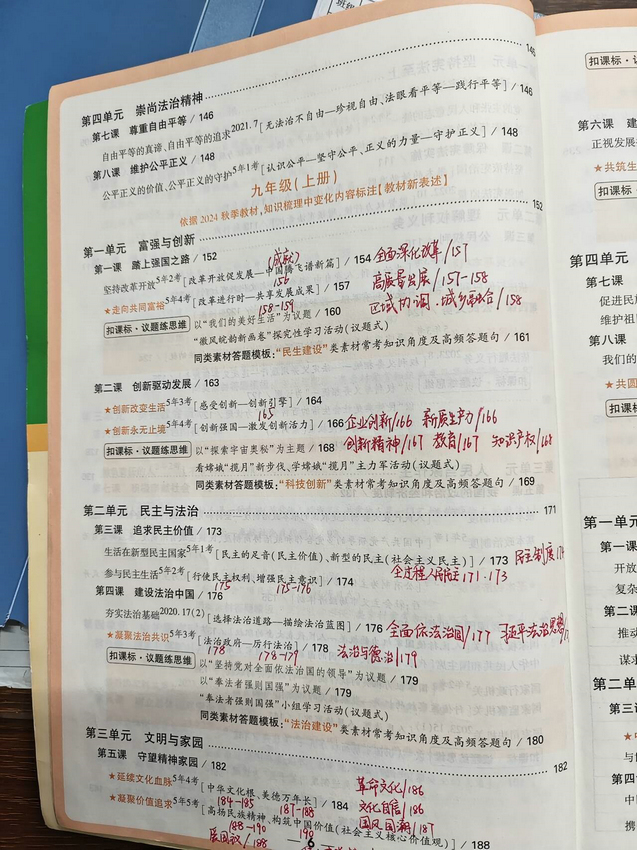 第四单元 崇尚法治精神 146
第七课 尊重自由平等 / 146
自由平等的真谛、自由平等的追求2021.7[无法治不自由—珍视自由、法眼看平等—践行平等] / 146
第八课 维护公平正义 / 148
公平正义的价值、公平正义的守护5年1考[认识公平—坚守公平、正义的力量—守护正义] / 148
九年级(上册)
依据2024秋季教材,知识梳理中变化内容标注【教材新表述】
第一单元 富强与创新 152
第一课 踏上强国之路 / 152
(成就)
坚持改革开放5年2考[改革开放促发展—中国腾飞谱新篇] / 154 全面深化改革/157
156
★走向共同富裕5年4考[改革进行时—共享发展成果] / 157 高质量发展/157-158
158-159 区域协调、城乡融合/158
扣课标·议题练思维 以“我们的美好生活”为议题 / 160
“徽风皖韵新画卷”探究性学习活动(议题式)
同类素材答题模板:“民生建设”类素材常考知识角度及高频答题句 / 161
第二课 创新驱动发展 / 163
★创新改变生活5年3考[感受创新—创新引擎] / 164
165
★创新永无止境5年4考[创新强国—激发创新活力] / 166 企业创新/166 新质生产力/166
创新精神/167 教育/167 知识产权/168
扣课标·议题练思维 以“探索宇宙奥秘”为主题 / 168
看嫦娥“揽月”新步伐、学嫦娥“揽月”主力军活动(议题式)
同类素材答题模板:“科技创新”类素材常考知识角度及高频答题句 / 169
第二单元 民主与法治 171
第三课 追求民主价值 / 173
生活在新型民主国家5年1考[民主的足音(民主价值)、新型的民主(社会主义民主)] / 173 民主制度
参与民主生活5年2考[行使民主权利、增强民主意识] / 174 全过程人民民主171、173
175 175-176
第四课 建设法治中国 / 176
夯实法治基础2020.17(2)[选择法治道路—描绘法治蓝图] / 176 全面依法治国/177 习近平法治思想
★凝聚法治共识5年3考[法治政府—厉行法治] / 178 法治与德治/179
178 178-179
扣课标·议题练思维 以“坚持党对全面依法治国的领导”为议题 / 179
以“奉法者强则国强”为议题 / 179
“奉法者强则国强”小组学习活动(议题式)
同类素材答题模板:“法治建设”类素材常考知识角度及高频答题句 / 180
第三单元 文明与家园 182
第五课 守望精神家园 / 182
★延续文化血脉5年4考[中华文化根、美德万年长] / 184 革命文化/186
184-185 187-188 文化自信/186
★凝聚价值追求5年5考[高扬民族精神、构筑中国价值(社会主义核心价值观)] / 188 国风国潮/187
188-190 190
/188
6
扣课标·议
第六课 建
正视发展
★共筑生
扣课标·
第四单元
第七课
促进民
维护祖
第八课
我们的
★共圆
扣课标
第一单元
第一课
开放
复杂
第二课
推动
谋求
第二单
第三
与
中
携